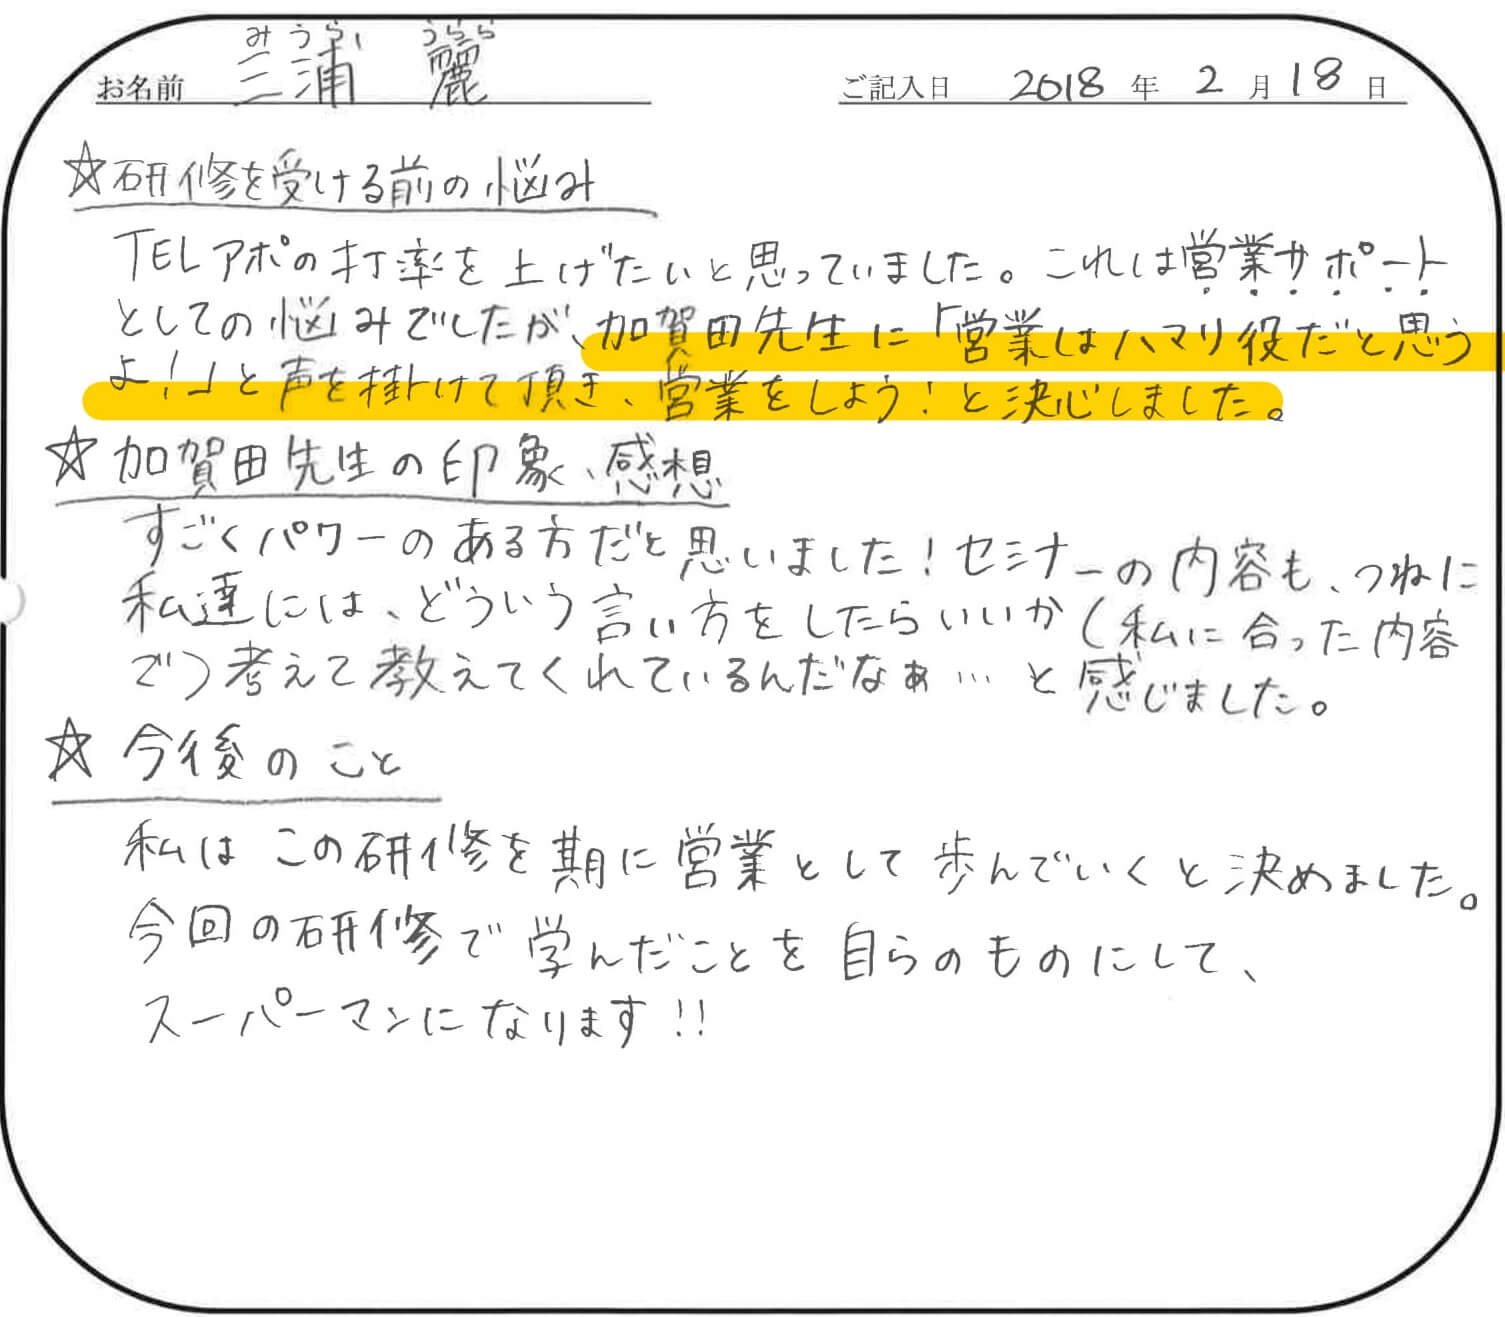 みうら うらら
お名前 三浦 麗 ご記入日 2018 年 2 月 18 日
☆研修を受ける前の悩み
TELアポの打率を上げたいと思っていました。これは営業サポート
としての悩みでしたが、加賀田先生に「営業はハマリ役だと思う
よ!」と声を掛けて頂き、営業をしよう!と決心しました。
☆加賀田先生の印象、感想
すごくパワーのある方だと思いました!セミナーの内容も、つねに
私達には、どういう言い方をしたらいいか(私に合った内容
で)考えて教えてくれているんだなぁ…と感じました。
☆今後のこと
私はこの研修を期に営業として歩んでいくと決めました。
今回の研修で学んだことを自らのものにして、
スーパーマンになります!!